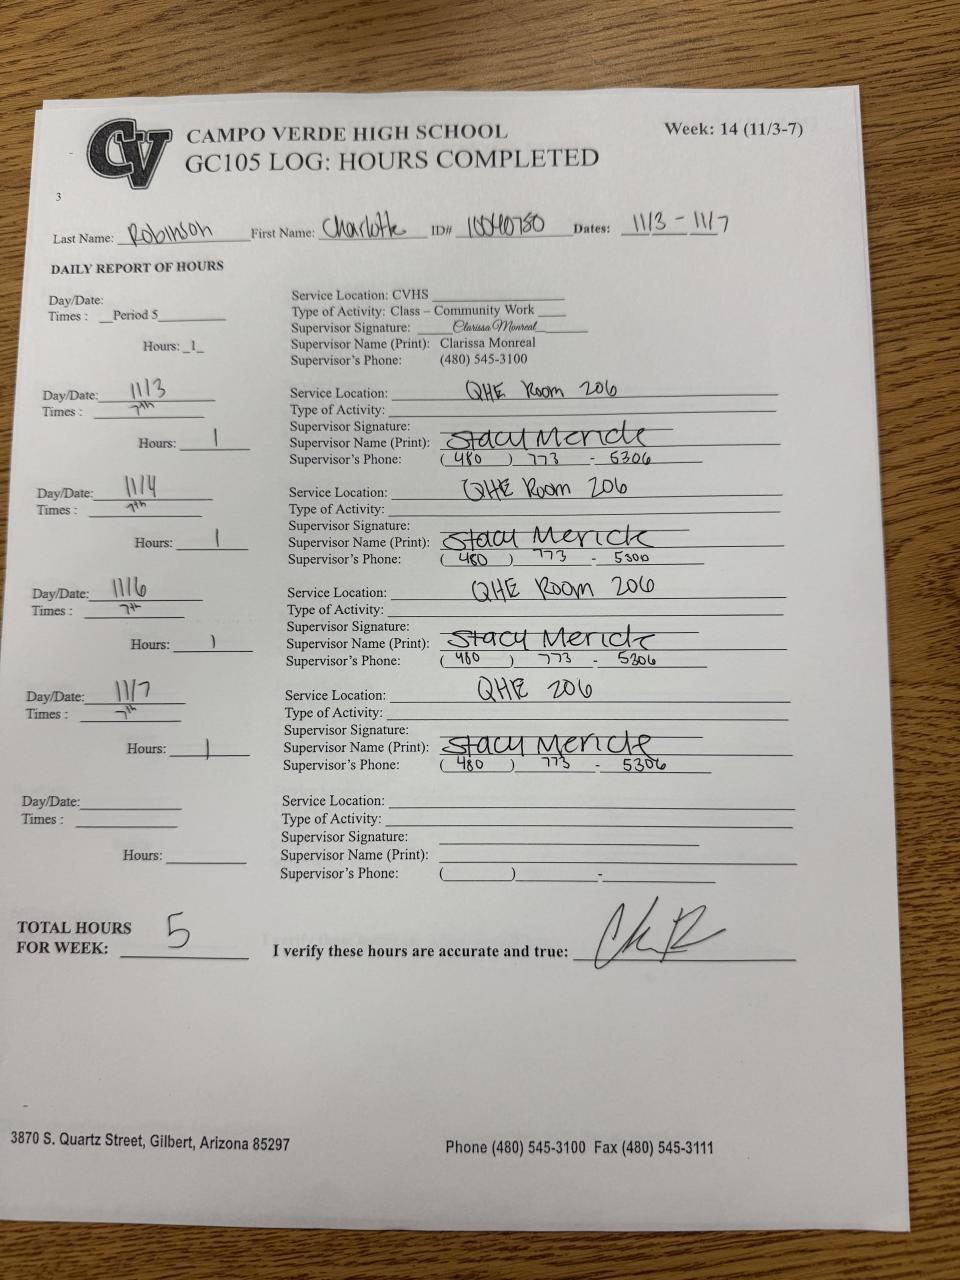 CV
CAMPO VERDE HIGH SCHOOL
Week: 14 (11/3-7)
GC105 LOG: HOURS COMPLETED
3
Last Name: Robinson First Name: Charlotte ID# Dates: 11/3 - 11/7
DAILY REPORT OF HOURS
Day/Date:
Times : Period 5
Hours: 1
Service Location: CVHS
Type of Activity: Class – Community Work
Supervisor Signature: Clarissa Monreal
Supervisor Name (Print): Clarissa Monreal
Supervisor's Phone: (480) 545-3100
Day/Date: 11/3
Times : 7th
Hours: 1
Service Location: QHE Room 206
Type of Activity:
Supervisor Signature:
Supervisor Name (Print): Stacy Merick
Supervisor's Phone: (480) 773 - 5306
Day/Date: 11/4
Times : 7th
Hours: 1
Service Location: QHE Room 206
Type of Activity:
Supervisor Signature:
Supervisor Name (Print): Stacy Merick
Supervisor's Phone: (480) 773 - 5306
Day/Date: 11/6
Times : 7th
Hours: 1
Service Location: QHE Room 206
Type of Activity:
Supervisor Signature:
Supervisor Name (Print): Stacy Merick
Supervisor's Phone: (480) 773 - 5306
Day/Date: 11/7
Times : 7th
Hours: 1
Service Location: QHE 206
Type of Activity:
Supervisor Signature:
Supervisor Name (Print): Stacy Merick
Supervisor's Phone: (480) 773 - 5306
Day/Date:
Times :
Hours:
Service Location:
Type of Activity:
Supervisor Signature:
Supervisor Name (Print):
Supervisor's Phone: ( ) -
TOTAL HOURS
FOR WEEK: 5
I verify these hours are accurate and true:
3870 S. Quartz Street, Gilbert, Arizona 85297
Phone (480) 545-3100 Fax (480) 545-3111